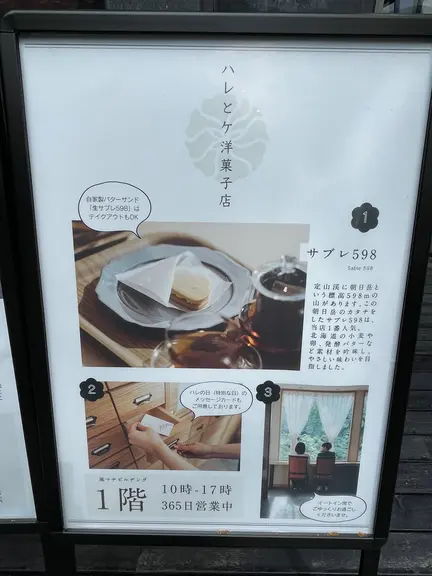 ハレとケ洋菓子店
自家製バターサンド
「生サブレ598」は
テイクアウトもOK
1
サブレ598
Sable 598
定山渓に朝日岳と
いう標高598mの
山があります。この
朝日岳のカタチを
したサブレ598は、
当店1番人気。
北海道の小麦や
卵、発酵バターな
ど素材を吟味し、
やさしい味わいを目
指しました。
2
ハレの日(特別な日)の
メッセージカードも
ご用意しております。
3
イートイン席で
ごゆっくりお過ごし
くださいませ。
1階
10時-17時
365日営業中